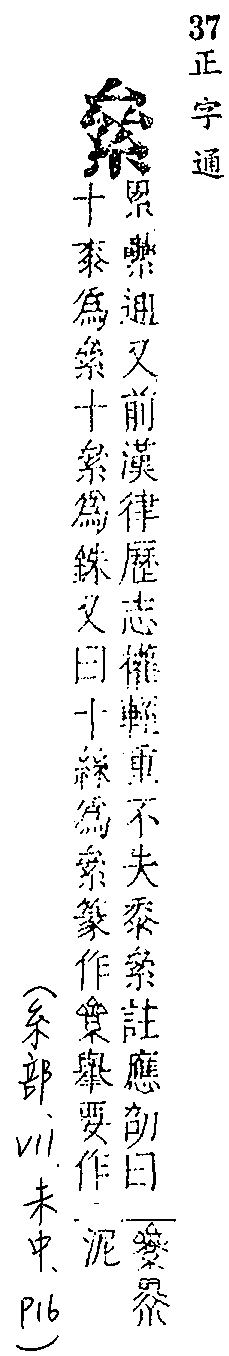 37
正字通
絫
累纍通又前漢律歷志權輕重不失黍絫註應劭曰
十黍為絫十絫為銖又曰十絲為絫篆作 舉要作
泥
(糸部、VII.未中、P16)